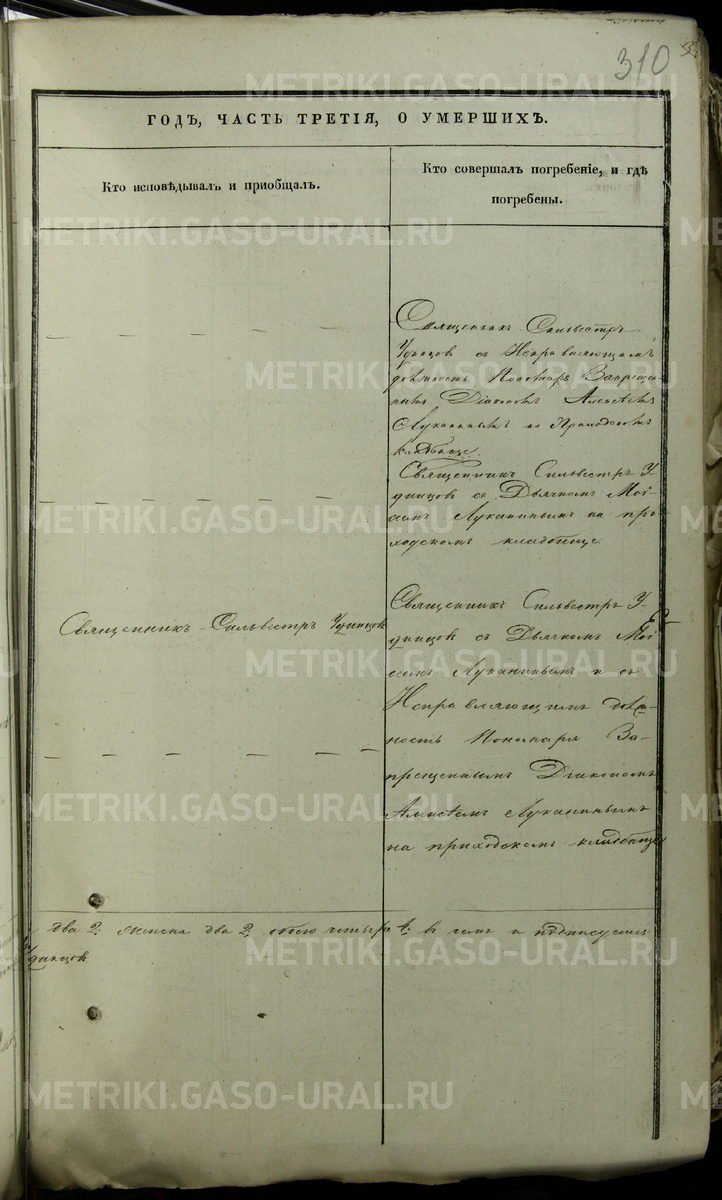 310
ГОДЪ, ЧАСТЬ ТРЕТІЯ, О УМЕРШИХЪ.
Кто исповѣдывалъ и пріобщалъ.
Кто совершалъ погребеніе, и гдѣ
погребены.
Священникъ Сильвестръ
Удинцов съ Исправляющимъ
должность Пономаря Запрещен-
нымъ Діакономъ Алексѣемъ
Луканинымъ на Приходскомъ
кладбище.
Священникъ Сильвестръ У-
динцов съ Дьячкомъ Мои-
сеемъ Луканинымъ на при-
ходскомъ кладбище
Священникъ Сильвестръ Удинцов
Священникъ Сильвестръ У-
динцов съ Дьячкомъ Мои-
сеемъ Луканинымъ и съ
Исправляющимъ долж-
ность Пономаря За-
прещеннымъ Діакономъ
Алексѣемъ Луканинымъ
на приходскомъ кладбище
два 2. женска два 2. обоего четыре 4: в чемъ и подписуемся
Удинцов
METRIKI.GASO-URAL.RU